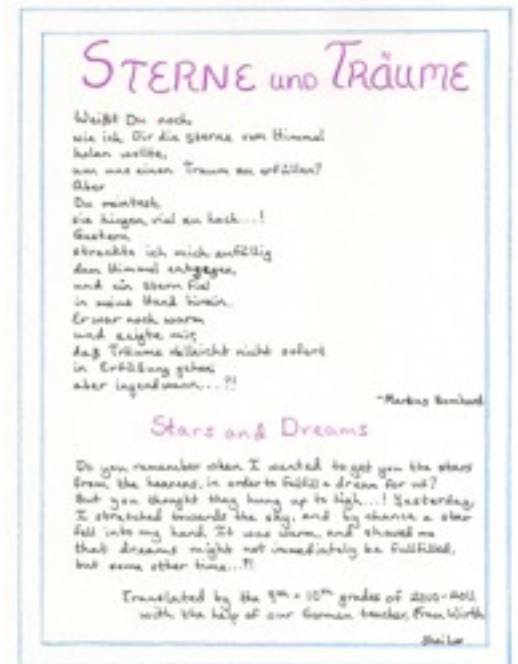 STERNE und TRÄUME
Weißt Du noch,
wie ich Dir die Sterne vom Himmel
holen wollte,
um uns einen Traum zu erfüllen?
Aber
Du meintest,
sie hingen viel zu hoch...!
Gestern
streckte ich mich zufällig
dem Himmel entgegen,
und ein Stern fiel
in meine Hand hinein.
Er war noch warm
und zeigte mir,
daß Träume vielleicht nicht sofort
in Erfüllung gehen;
aber irgendwann...?!
-Markus Bomhard
Stars and Dreams
Do you remember when I wanted to get you the stars
from the heavens, in order to fulfill a dream for us?
But you thought they hung up to high...! Yesterday,
I stretched towards the sky, and by chance a star
fell into my hand. It was warm, and showed me
that dreams might not immediately be fullfilled,
but some other time...?!
Translated by the 9th + 10th grades of 2010-2011
with the help of our German teacher, Frau Wirth